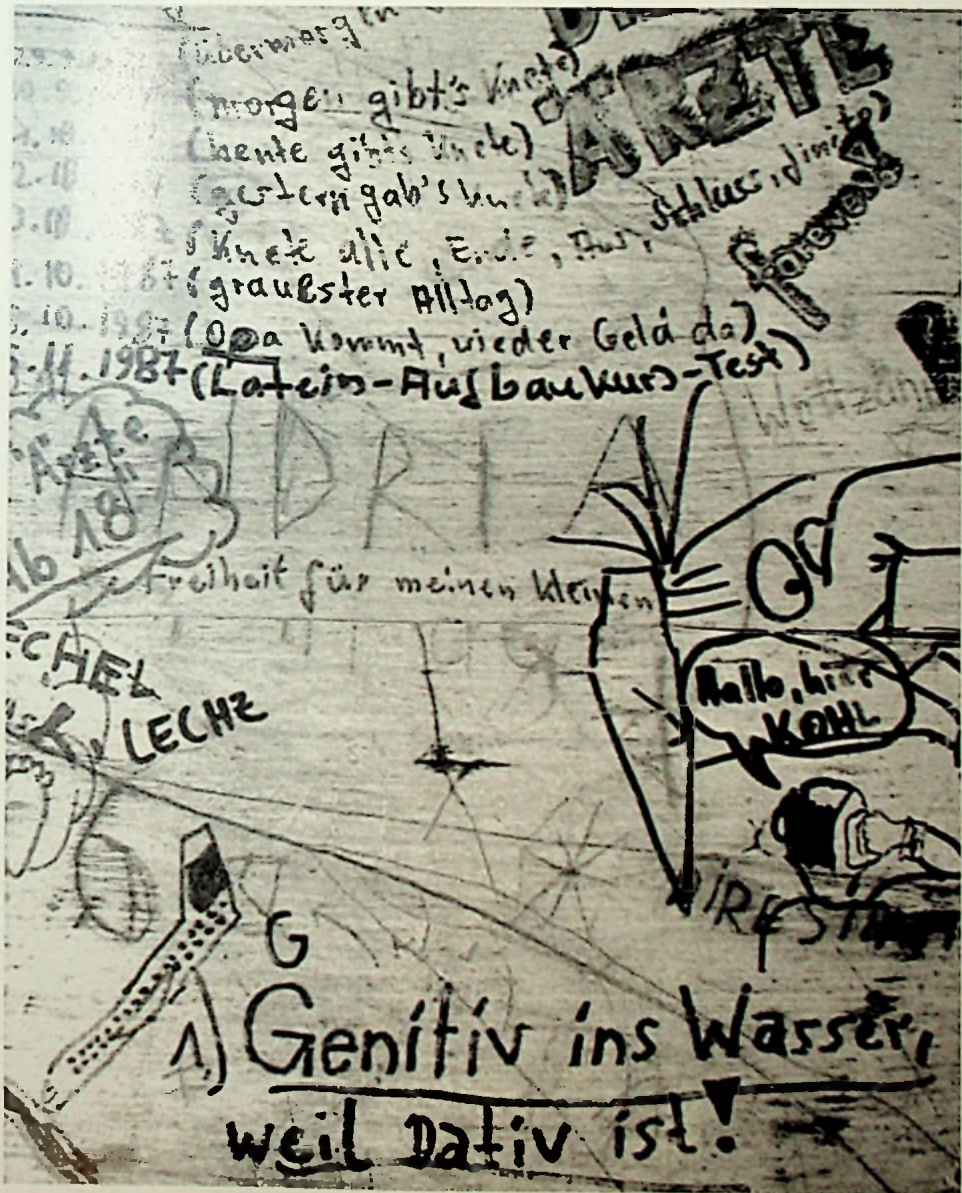 (übermorg
(morgen gibt's Knete)
(heute gibt's Knete)
(gestern gab's Knete)
(Knete alle, Ende, Aus, Schluss,
10.1987 (grauester Alltag)
10.1987 (Opa kommt, wieder Geld da)
11.1987 (Latein-Aufbaukurs-Test)
ÄRZTE
forever!
Ärzte
ab 18
ADRIA
Freiheit für meinen kleinen
LECHZ
Hallo, hier
KOHL
DIRE STRAITS
G
1) Genitiv ins Wasser,
weil Dativ ist!